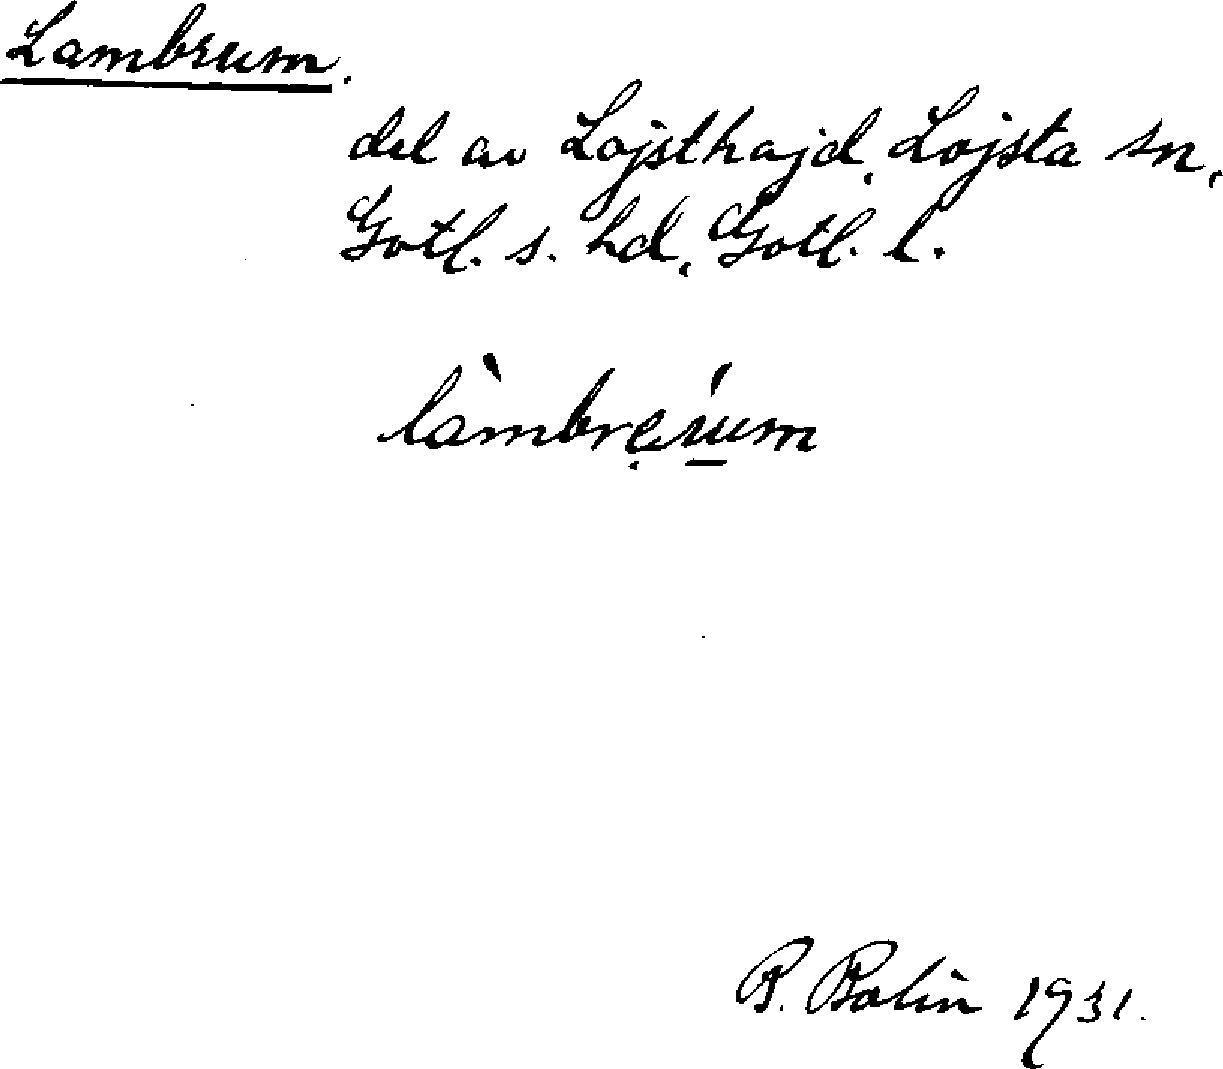 Lambrum.
del av Lojsthajd, Lojsta sn,
Gotl. s. hd, Gotl. l.
B. Bolin 1931.